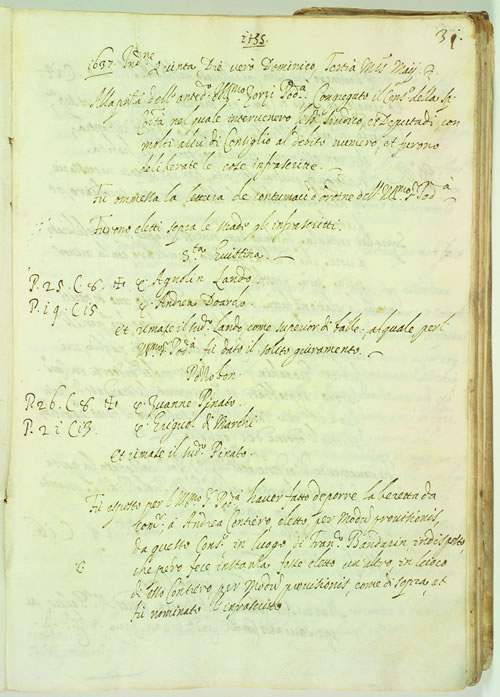 1735.
31.
1637. Ind.ne Quinta Die vero Dominico, Tertia Mēs Maij
Alla pñta dell' anted.o Ill.mo Zorzi Pod.à Congregato il Cons.o della
nel quale intervenero Sindico, et Deputadi con
molti altri di Consiglio al debito numero, et furono
deliberate le cose infrascritte.
Fù ommessa la lettura de contumaci d'ordine dell' Ill.mo S.r Pod.à
Furono eletti sopra le strade gl' infrascritti.
S.ta
P. 25. C. 8. Agnolin Lando
P. 19. C. 15 Andrea
et rimase il sud.o Lando come superior di balle, al quale per l'
Ill.mo S.r Pod.à fù dato il solito giuramento.
P. 26. C. 8. Zuanne Pinato.
P. 21. C. 13. di Marchi
et rimase il sud.o Pinato.
Fù esposto per l' Ill.mo S.r Pod.à haver fatto deporre la beretta da
à Andrea Contiero eletto, per modũ provisionis,
da questo Cons.o in luogo di Fran.o Bandarin indisposto
che però fece instanza fosse eletto un' altro, in luoco
di esso Contiero per modũ provisionis, come di sopra, et
fù nominato l'infrascritto